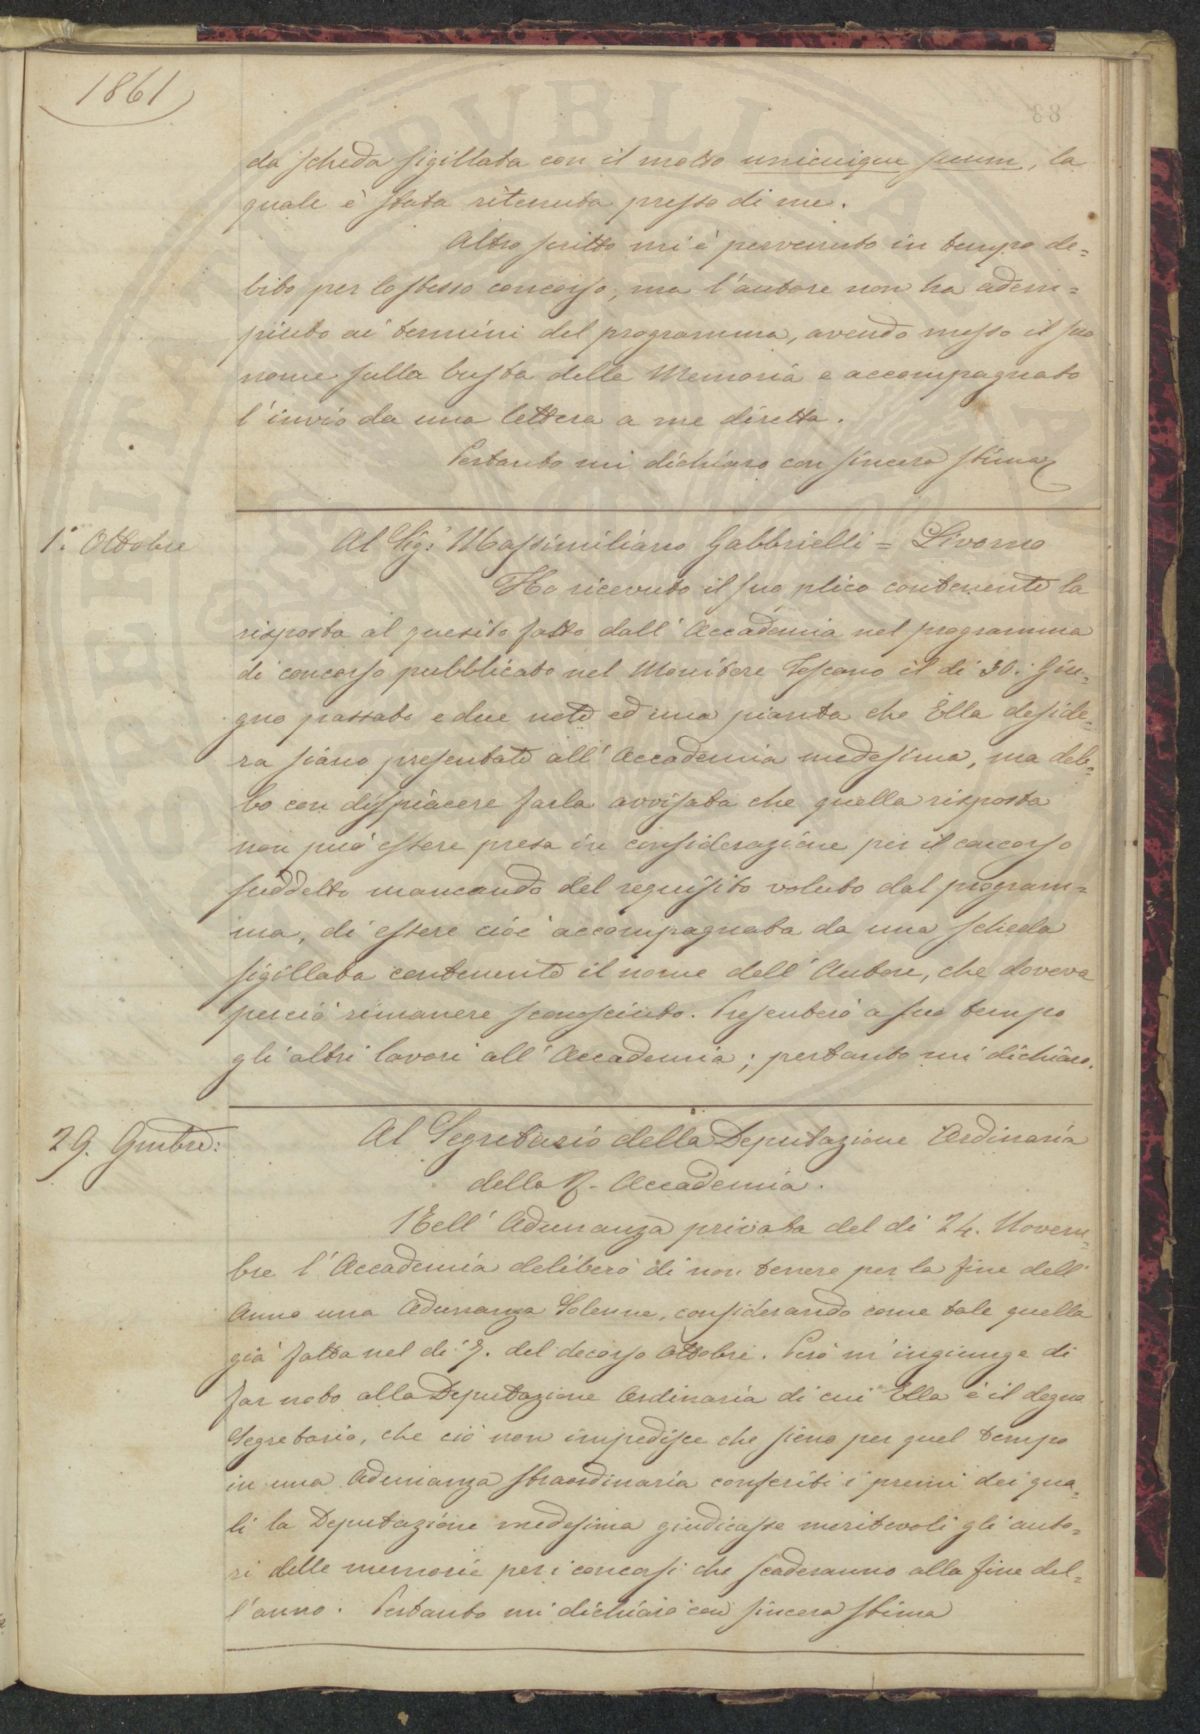 1861
88
da scheda sigillata con il motto unicuique suum, la
quale è stata ritenuta presso di me.
Altro scritto mi è pervenuto in tempo de=
bito per lo stesso concorso, ma l'autore non ha adem=
piuto ai termini del programma, avendo messo il suo
nome sulla busta della Memoria e accompagnato
l'invio da una lettera a me diretta.
Pertanto mi dichiaro con sincera stima
1.° Ottobre
Al Sig.r Massimiliano Gabbrielli = Livorno
Ho ricevuto il suo plico contenente la
risposta al quesito fatto dall'Accademia nel programma
di concorso pubblicato nel Monitore Toscano il dì 30. Giu=
gno passato e due note ed una pianta che Ella deside=
ra siano presentate all'Accademia medesima, ma deb=
bo con dispiacere farla avvisata che quella risposta
non può essere presa in considerazione per il concorso
suddetto mancando del requisito voluto dal program=
ma, di essere cioè accompagnata da una scheda
sigillata contenente il nome dell'Autore, che doveva
perciò rimanere sconosciuto. Presenterò a suo tempo
gli altri lavori all'Accademia; pertanto mi dichiaro.
29. 9mbre:
Al Segretario della Deputazione Ordinaria
della R. Accademia.
Nell'Adunanza privata del dì 24. Novem=
bre l'Accademia deliberò di non tenere per la fine dell'
Anno una Adunanza Solenne, considerando come tale quella
già fatta nel dì 7. del decorso Ottobre. Però m'ingiunge di
far noto alla Deputazione Ordinaria di cui Ella è il degno
Segretario, che ciò non impedisce che sieno per quel tempo
in una Adunanza straordinaria conferiti i premi dei qua=
li la Deputazione medesima giudicasse meritevoli gli auto=
ri delle memorie per i concorsi che scaderanno alla fine del=
l'anno. Pertanto mi dichiaro con sincera stima